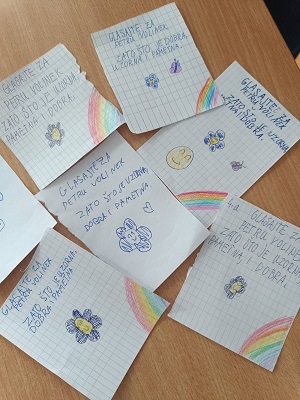 GLASAJTE ZA
PETRU VOLINEK
ZATO ŠTO JE DOBRA,
UZORNA I PAMETNA.
GLASAJTE ZA
PETRU VOLINEK
ZATO ŠTO JE UZORNA
PAMETNA I DOBRA.
GLASAJTE ZA
PETRU VOLINEK
ZATO ŠTO JE UZORNA,
DOBRA.
GLASAJTE ZA
PETRU VOLINEK
ZATO ŠTO JE UZORNA,
DOBRA I PAMETNA.
GLASAJTE ZA
PETRU VOLINEK
ZATO ŠTO JE
PAMETNA I DOBRA.
GLASAJTE ZA
PETRU VOLINEK
ZATO ŠTO JE
DOBRA I PAMETNA